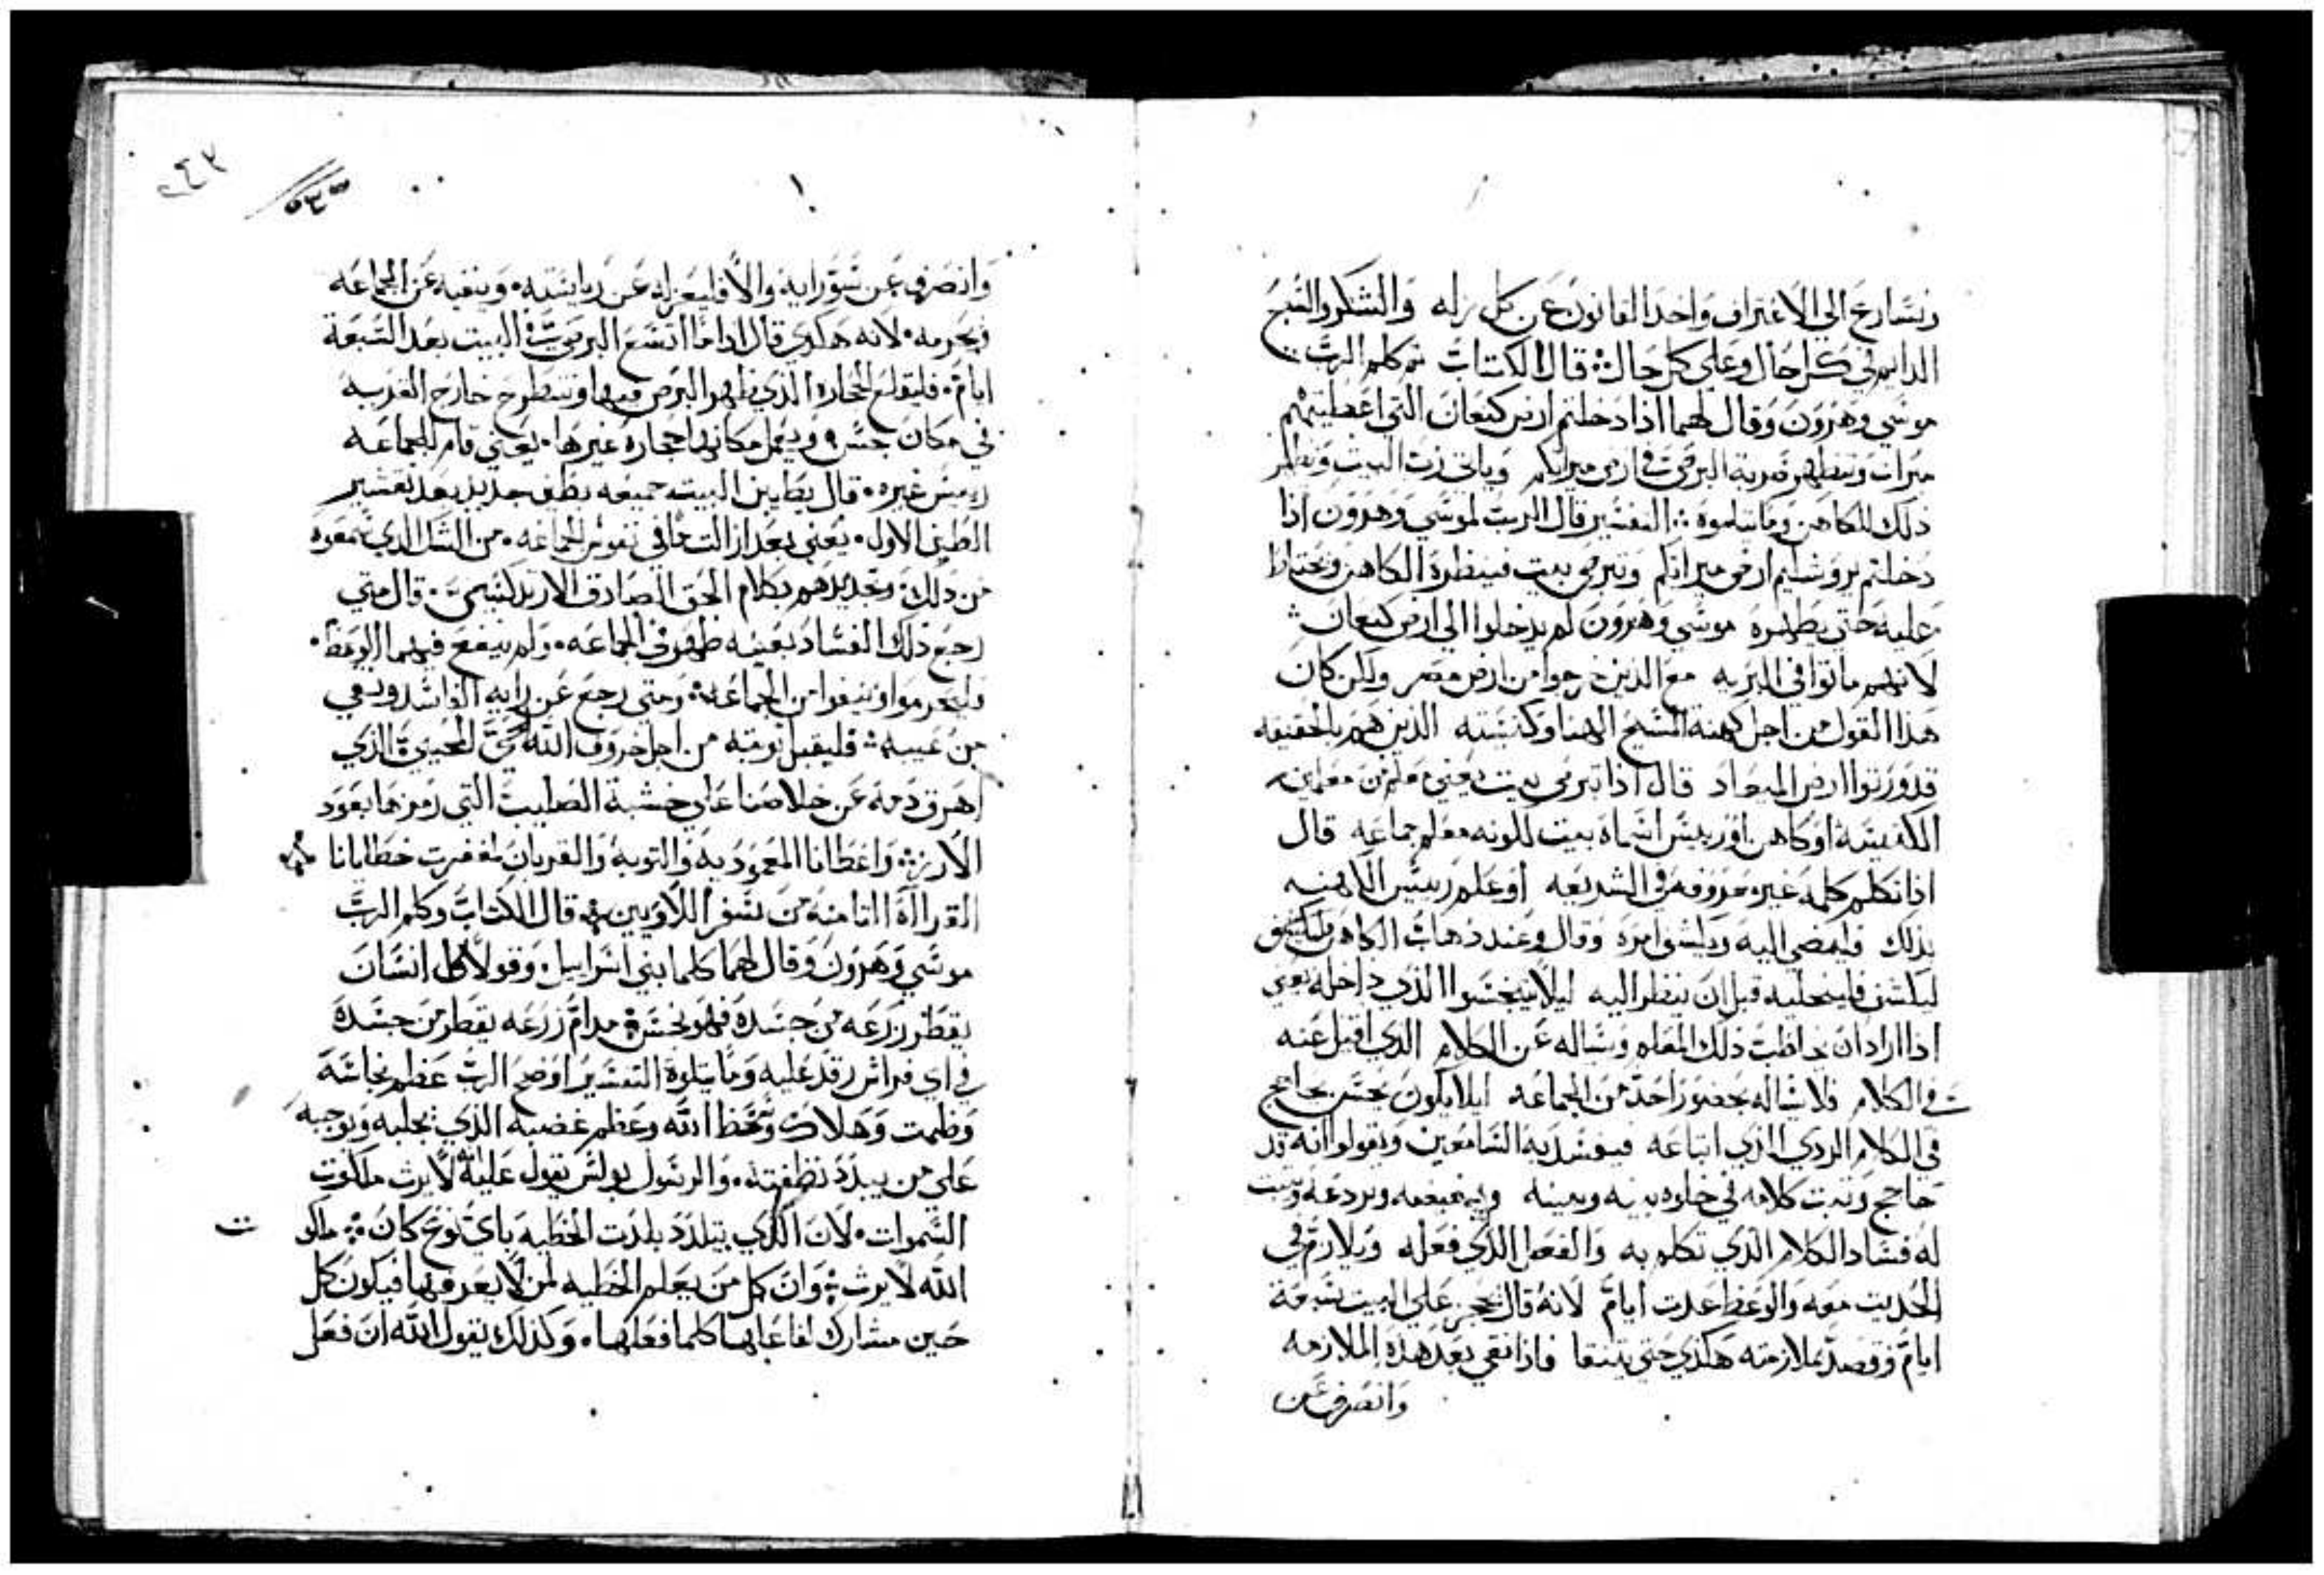 ونسارع الي الاعتراف واخد القانون عن كل زله والشكر والتسبح
الدايم في كل حال وعلي كل حال ۞ قال الكتاب ثم كلم الرب
موسي وهرون وقال لهما اذا دخلتم ارض كنعان التي اعطيتكم
ميراث وتظهر ضربة البرص في ارض ميراثكم وياتي رب البيت ويظهر
ذلك للكاهن وما يتلوه ۞ التفسير قال الرب لموسي وهرون اذا
دخلتم يروشليم ارض ميراثكم وتبرص بيت فينظره الكاهن ويحتاط
عليه حتي يطهره موسي وهرون لم يدخلوا الي ارض كنعان ۞
لانهم ماتوا في البريه مع الذين خرجوا من ارض مصر ولكن كان
هذا القول من اجل كهنة المسيح الهنا وكنيسته الذين هم بالحقيقه
قد ورتوا ارض الميعاد قال اذا تبرص بيت يعني معلم من معلمين
الكنيسة او كاهن او رييس اسماه بيت لكونه معلم جماعه قال
اذا تكلم كلمه غير معروفه في الشريعه او علم رييس الكهنه
بذلك فليمضي اليه ويكشف امره وقال وعند ذهاب الكاهن
ليكشف فليخليه قبل ان ينظر اليه ليلا يتنجسوا الذي داخله يعني
اذا اراد ان يخاطب ذلك المعلم ويساله عن الكلام الذي اقيل عنه
في الكلام فلا يساله بحضور احد من الجماعه ليلا يكون يحسن يحاجج
في الكلام الردي الذي اتباعه فيفسد به السامعين ويقولوا انه قد
حاجج وتبت كلامه في خلوه بينه وبينه ويردعه ويتبت
له فساد الكلام الذي تكلم به والفعل الذي فعله ويلازم في
الحديت معه والوعظ عدت ايام لانه قال يحجز علي البيت سبعة
ايام وقصد بملازمته هكذي حتي يتنقا فاذا نقي بعد هذه الملازمه
وانصرف عن
٢٤٢
وانصرف عن سو رايه والا فليعزله عن رياسته ۰ وينفيه عن الجماعه
ويحرمه ۰ لانه هكذي قال اذا ما اتسع البرص في البيت بعد السبعة
ايام ۰ فليقلع الحجاره الذي ظهر البرص فيها وتنطرح خارج القريه
في مكان نجس ويعمل مكانها حجاره غيرها ۰ يعني يقام للجماعه
رييس غيره ۰ قال يطين البيت جميعه بطين جديد بعد تقشير
الطين الاول ۰ يعني بعد ازالت ما في نفوس الجماعه ۰ من الشك الذي سمعوه
من ذلك وتجديدهم بكلام الحق الصادق الارتدكسي ۰ قال متي
رجع ذلك الفساد بعينه ظهر في الجماعه ۰ ولم ينفع فيهم الوعظ ۰
فليحرموا وينفوا من الجماعه ۞ ومتي رجع عن رايه الفاسد ونقي
من عيبه ۞ فليقبل توبته من اجل خروف الله الحي المحيي الذي
اهرق دمه عن خلاصنا علي خشبة الصليب التي رمزها بعود
الارز ۞ واعطانا المعموديه والتوبه والقربان لمغفرت خطايانا
القراأة التامنه من سفر اللاويين ۞ قال الكتاب وكلم الرب
موسي وهرون وقال لهما كلما بني اسراييل ۰ وقولا كل انسان
يقطر زرعه من جسده فهو نجس مدام زرعه يقطر من جسده
في اي فراش رقد عليه وما يتلوه التفسير اوضح الرب عظم نجاسة
وظلمت وهلاك وسخط الله وعظم غضبه الذي يجلبه ويوجبه
علي من يبدد نطفته ۰ والرسول بولس يقول عليه انه لا يرث ملكوت
السموات ۰ لان الذي يتلدد بلدت الخطيه باي نوع كان ۞ ملكوت
الله لا يرث ۞ وان كل من يعلم الخطيه لمن لا يعرفها فيكون كل
حين مشارك لفاعلها كلما فعلها ۰ وكذلك يقول الله ان فعل